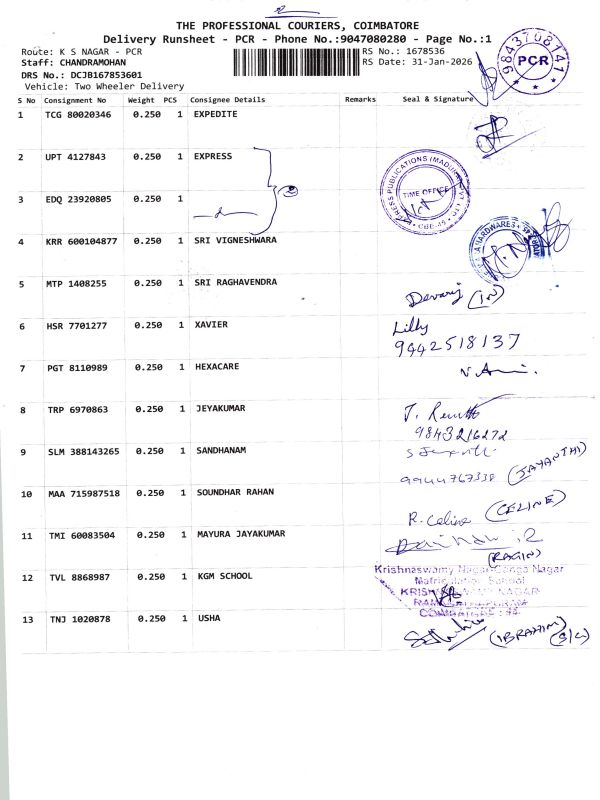 THE PROFESSIONAL COURIERS, COIMBATORE
Delivery Runsheet - PCR - Phone No.:9047080280 - Page No.:1
Route: K S NAGAR - PCR
RS No.: 1678536
Staff: CHANDRAMOHAN
RS Date: 31-Jan-2026
DRS No.: DCJB167853601
Vehicle: Two Wheeler Delivery
9843708141
PCR
S No Consignment No Weight PCS Consignee Details Remarks Seal & Signature
1 TCG 80020346 0.250 1 EXPEDITE
2 UPT 4127843 0.250 1 EXPRESS
TIME OFFICE
3 EDQ 23920805 0.250 1
4 KRR 600104877 0.250 1 SRI VIGNESHWARA
5 MTP 1408255 0.250 1 SRI RAGHAVENDRA
Devaraj (IN)
6 HSR 7701277 0.250 1 XAVIER
Lilly
9442518137
7 PGT 8110989 0.250 1 HEXACARE
8 TRP 6970863 0.250 1 JEYAKUMAR
9843216272
9 SLM 388143265 0.250 1 SANDHANAM
9944767338 (JAYANTHI)
10 MAA 715987518 0.250 1 SOUNDHAR RAHAN
R. Celine (CELINE)
11 TMI 60083504 0.250 1 MAYURA JAYAKUMAR
12 TVL 8868987 0.250 1 KGM SCHOOL
Krishnaswamy Nagar Ganga Nagar
Matriculation School
13 TNJ 1020878 0.250 1 USHA
(IBRAHIM)